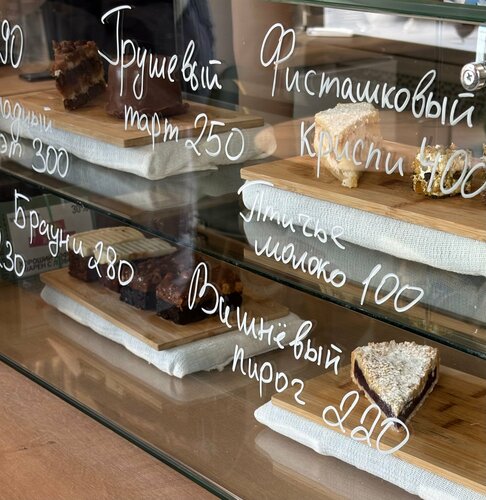 90
Грушевый
тарт 250
Фисташковый
Криспи 400
300
Птичье
молоко 100
Брауни 280
230
Вишнёвый
пирог 220